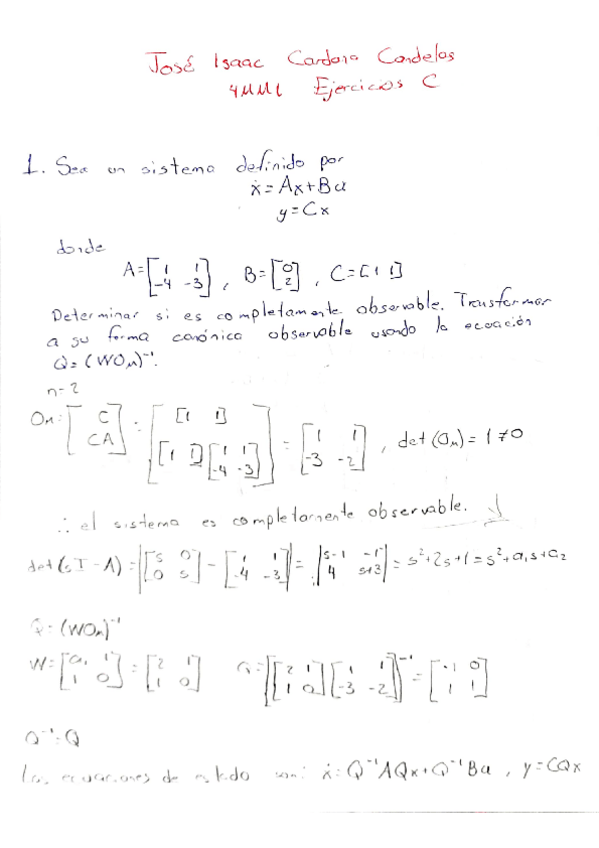 José Isaac Cardozo Candelas
4MM1 Ejercicios C
1. Sea un sistema definido por
ẋ=Ax+Bu
y=Cx
donde
A=[1 1; -4 -3], B=[0; 2], C=[1 1]
Determinar si es completamente observable. Transformar
a su forma canónica observable usando la ecuación
Q=(WOM)⁻¹.
n=2
OM=[C; CA]=[[1 1]; [1 1][1 1; -4 -3]]=[1 1; -3 -2], det(OM)=1≠0
∴ el sistema es completamente observable.
det(sI-A)=|[s 0; 0 s]-[1 1; -4 -3]|=|s-1 -1; 4 s+3|=s²+2s+1=s²+a₁s+a₂
Q=(WOM)⁻¹
W=[a₁ 1; 1 0]=[2 1; 1 0] Q=[[2 1; 1 0][1 1; -3 -2]]⁻¹=[-1 0; 1 1]
Q⁻¹=Q
Las ecuaciones de estado son: ẋ=Q⁻¹AQx+Q⁻¹Bu, y=CQx